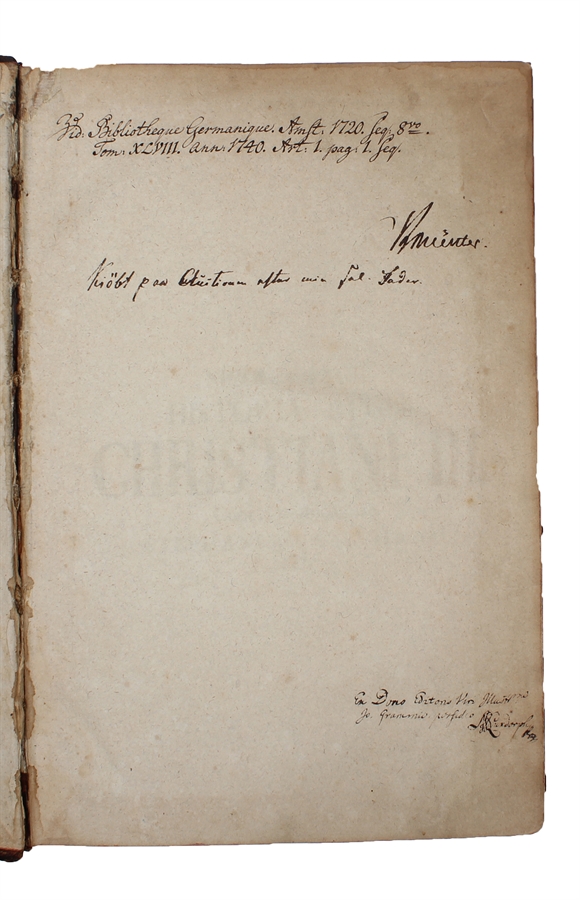 Vid: Bibliotheque Germanique. Amst: 1720. seq. 8vo.
Tom: XLVIII. ann: 1740. Art: 1. pag: 1. seq.
Münter.
Kiöbt paa Auctionen efter min sal. Fader.
Ex Dono Editoris Viri
Jo. Grammii
CHRISTIANI III